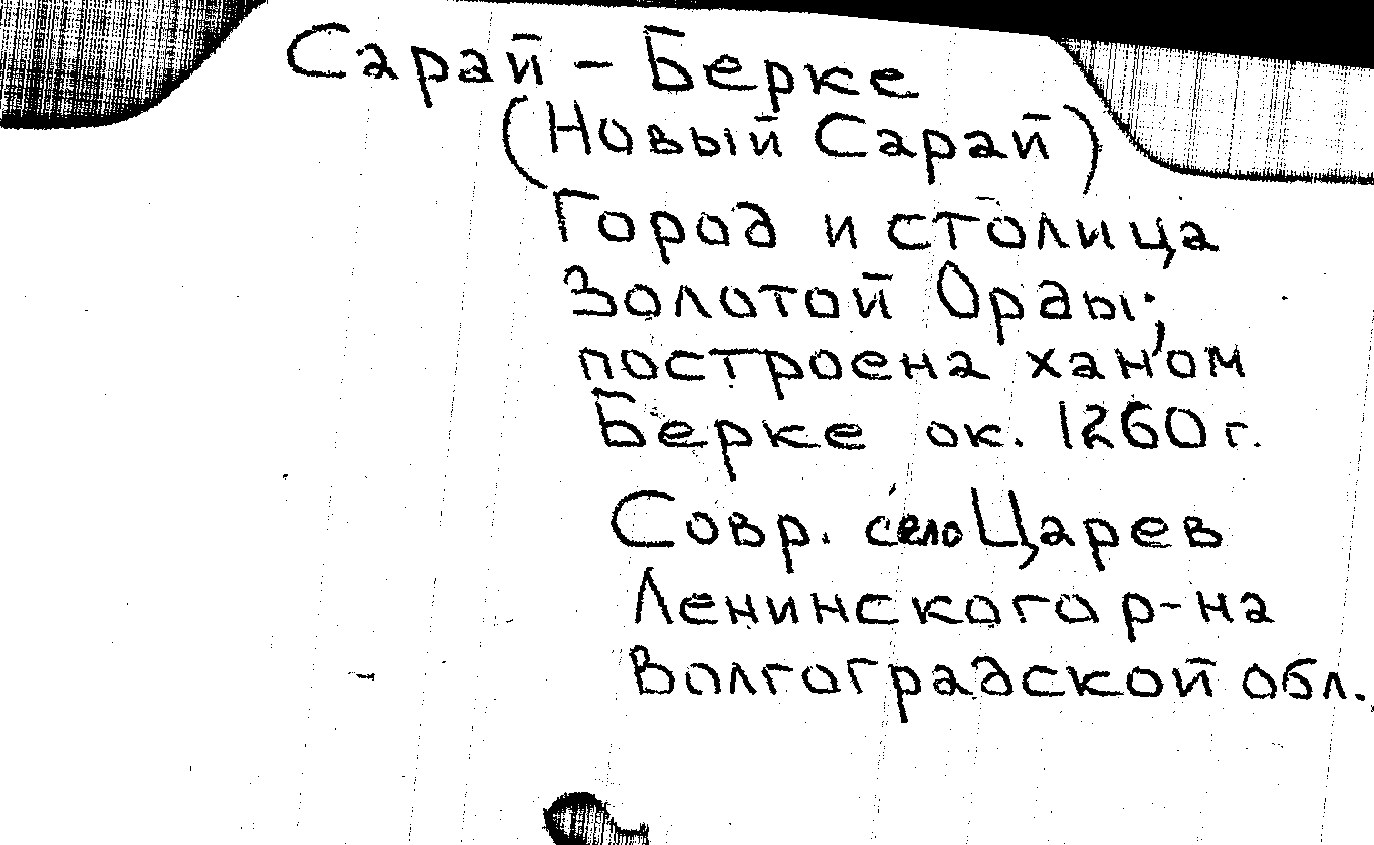 Сарай - Берке
(Новый Сарай)
Город и столица
Золотой Орды;
построена ханом
Берке ок. 1260 г.
Совр. село Царев
Ленинского р-на
Волгоградской обл.